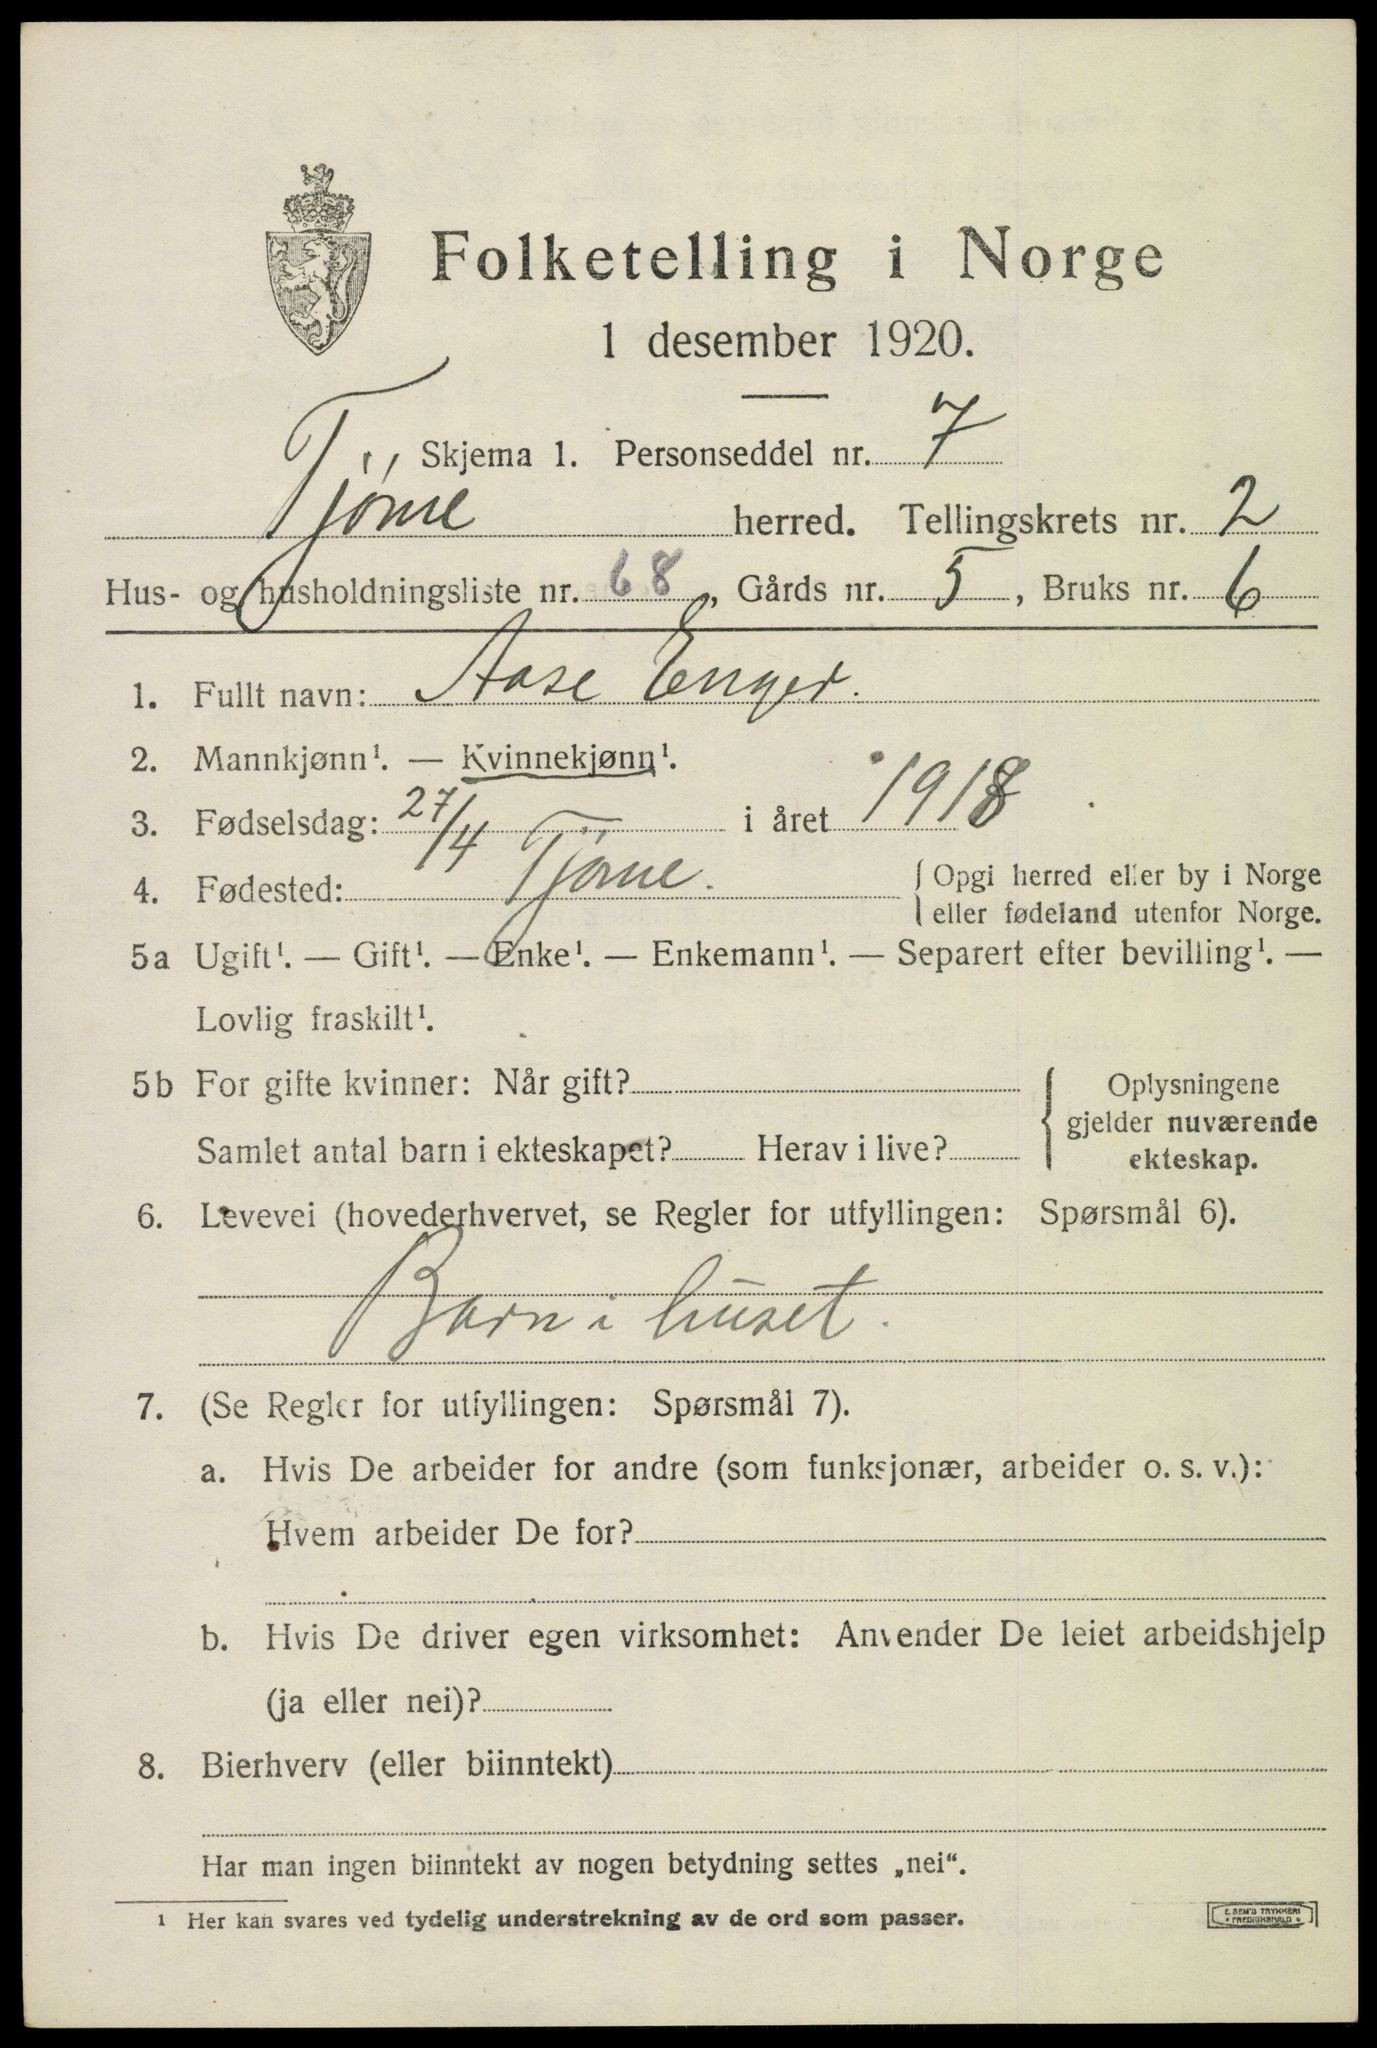 Folketelling i Norge
1 desember 1920.
Skjema 1. Personseddel nr. 7
Tjøme herred. Tellingskrets nr. 2
Hus- og husholdningsliste nr. 68, Gårds nr. 5, Bruks nr. 6
1. Fullt navn: Aase Enger.
2. Mannkjønn¹. — Kvinnekjønn¹.
3. Fødselsdag: 27/4 i året 1918
4. Fødested: Tjøme. { Opgi herred eller by i Norge
eller fødeland utenfor Norge.
5a Ugift¹. — Gift¹. — Enke¹. — Enkemann¹. — Separert efter bevilling¹. —
Lovlig fraskilt¹.
5b For gifte kvinner: Når gift? { Oplysningene
gjelder nuværende
Samlet antal barn i ekteskapet? Herav i live? ekteskap.
6. Levevei (hovederhvervet, se Regler for utfyllingen: Spørsmål 6).
Barn i huset.
7. (Se Regler for utfyllingen: Spørsmål 7).
a. Hvis De arbeider for andre (som funksjonær, arbeider o. s. v.):
Hvem arbeider De for?
b. Hvis De driver egen virksomhet: Anvender De leiet arbeidshjelp
(ja eller nei)?
8. Bierhverv (eller biinntekt)
Har man ingen biinntekt av nogen betydning settes „nei“.
¹ Her kan svares ved tydelig understrekning av de ord som passer.
E. SEM'S TRYKKERI
• FREDRIKSHALD •